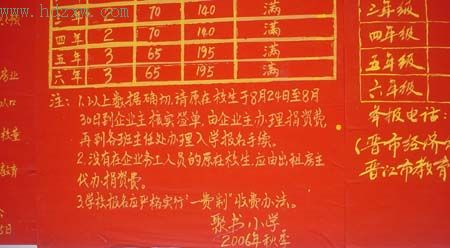 www.hdzxw.com
70 140 满
四年 2 70 140 满
五年 3 65 195 满
六年 3 65 195 满
注:1.以上数据确切,请原在校生于8月24日至8月
30日到企业主抽票签单,由企业主办理捐资费,
再到各班主任处办理入学报名手续。
2.没有在企业务工人员的原在校生,应由出租房主
代办捐资费。
3.学校报名应严格实行"一费制"收费办法。
聚书小学
2006年秋季
三年级
四年级
五年级
六年级
举报电话:
(晋市经济
晋江市教育
房业
以口
教育